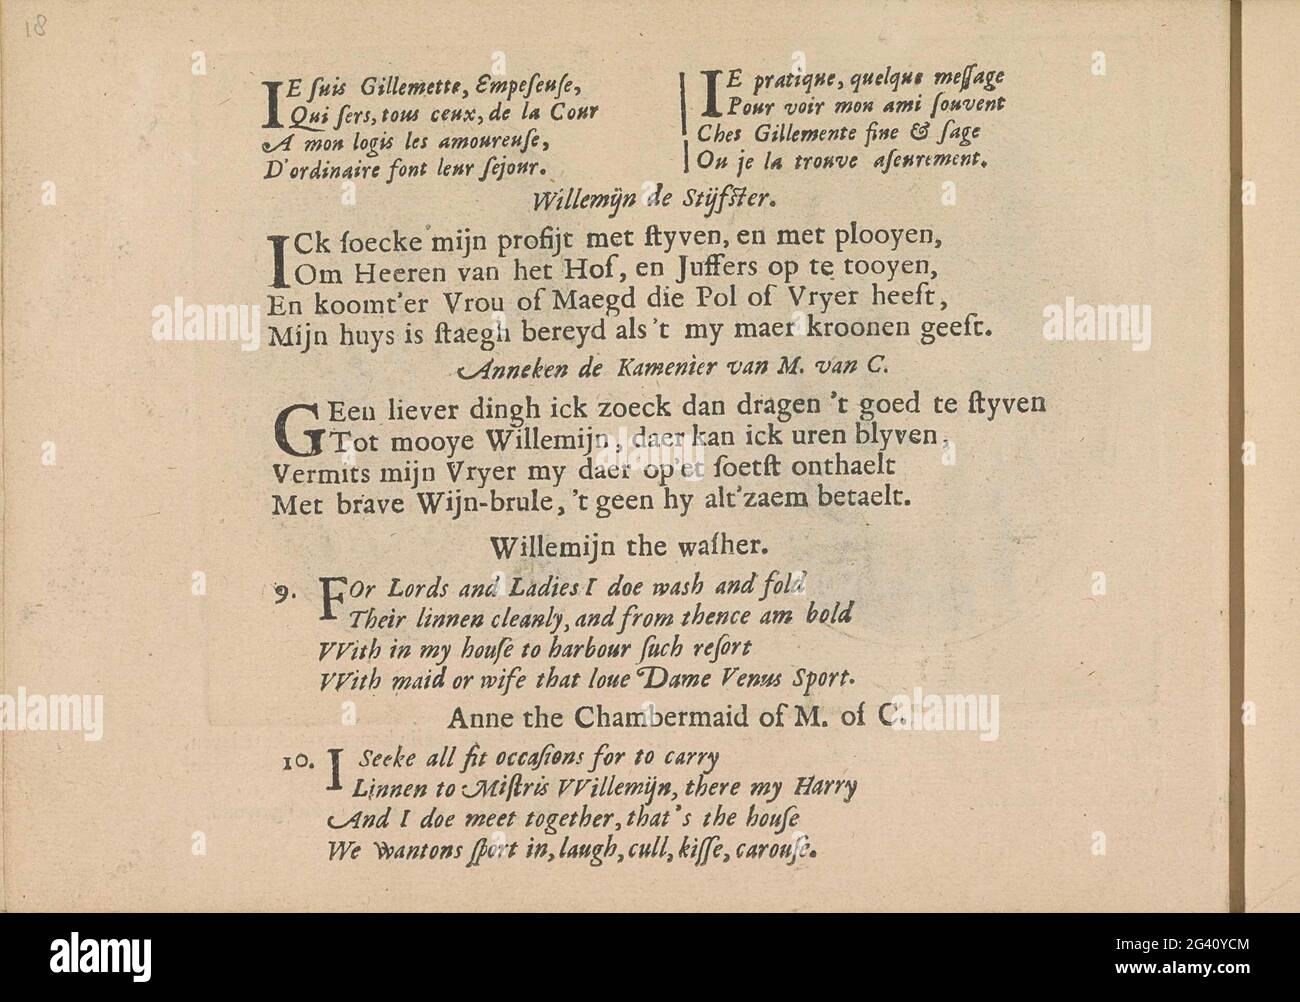 18
IE ſuis Gillemette, Empeſeuſe,
Qui ſers, tous ceux, de la Cour
A mon logis les amoureuſe,
D'ordinaire font leur ſejour.
IE pratique, quelque meſſage
Pour voir mon ami ſouvent
Ches Gillemente fine & ſage
Ou je la trouve aſeurement.
Willemijn de Stijfster.
ICk ſoecke mijn profijt met ſtyven, en met plooyen,
Om Heeren van het Hof, en Juffers op te tooyen,
En koomt'er Vrou of Maegd die Pol of Vryer heeft,
Mijn huys is ſtaegh bereyd als 't my maer kroonen geeft.
Anneken de Kamenier van M. van C.
GEen liever dingh ick zoeck dan dragen 't goed te ſtyven
Tot mooye Willemijn, daer kan ick uren blyven,
Vermits mijn Vryer my daer op'et ſoetſt onthaelt
Met brave Wijn-brule, 't geen hy alt'zaem betaelt.
Willemijn the waſher.
9. FOr Lords and Ladies I doe wash and fold
Their linnen cleanly, and from thence am bold
VVith in my houſe to harbour ſuch reſort
VVith maid or wife that loue Dame Venus Sport.
Anne the Chambermaid of M. of C.
10. I Seeke all fit occaſions for to carry
Linnen to Miſtris VVillemijn, there my Harry
And I doe meet together, that's the houſe
We wantons ſport in, laugh, cull, kiſſe, carouſe.
alamy
Image ID: 2G40YCM
www.alamy.com